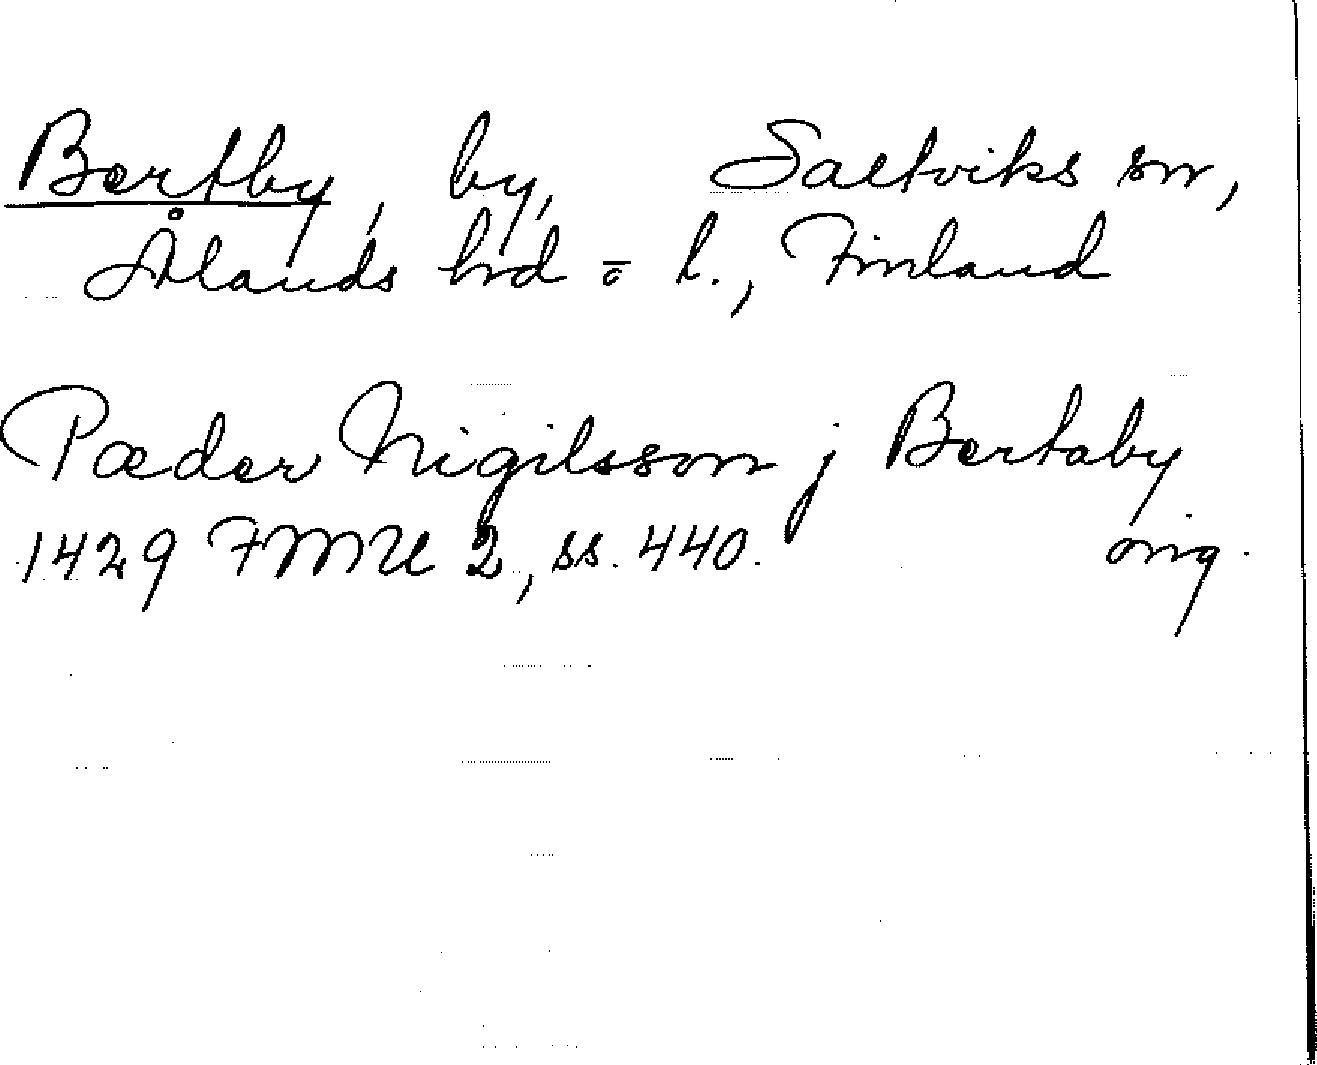 Bertby, by, Saltviks sn,
Ålands hrd o l., Finland
Pæder Nigilsson j Bertaby
1429 FMU 2, ss. 440. orig.